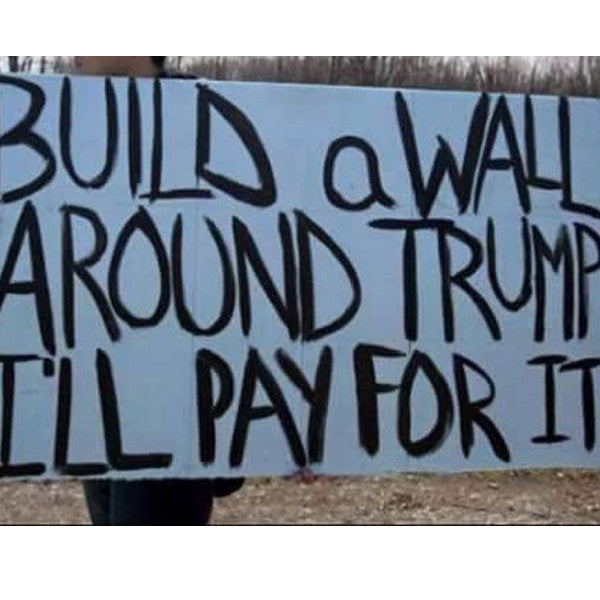 BUILD a WALL
AROUND TRUMP
I'LL PAY FOR IT